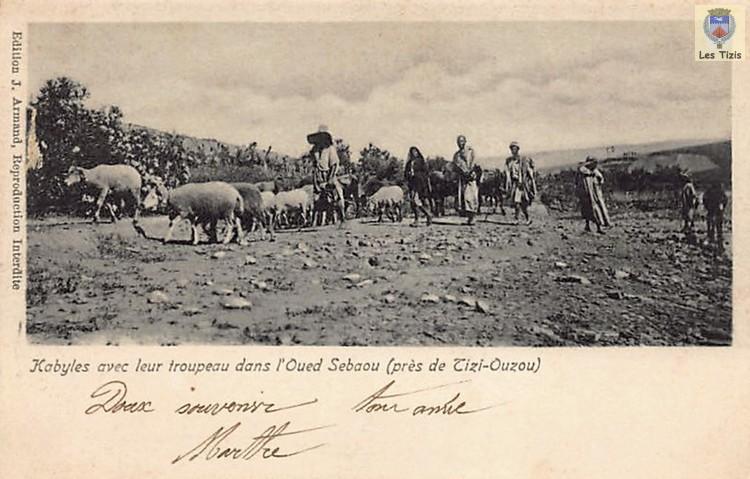 Les Tizis
Edition J. Armand, Reproduction Interdite
Kabyles avec leur troupeau dans l'Oued Sebaou (près de Tizi-Ouzou)
Doux souvenir
Marthe